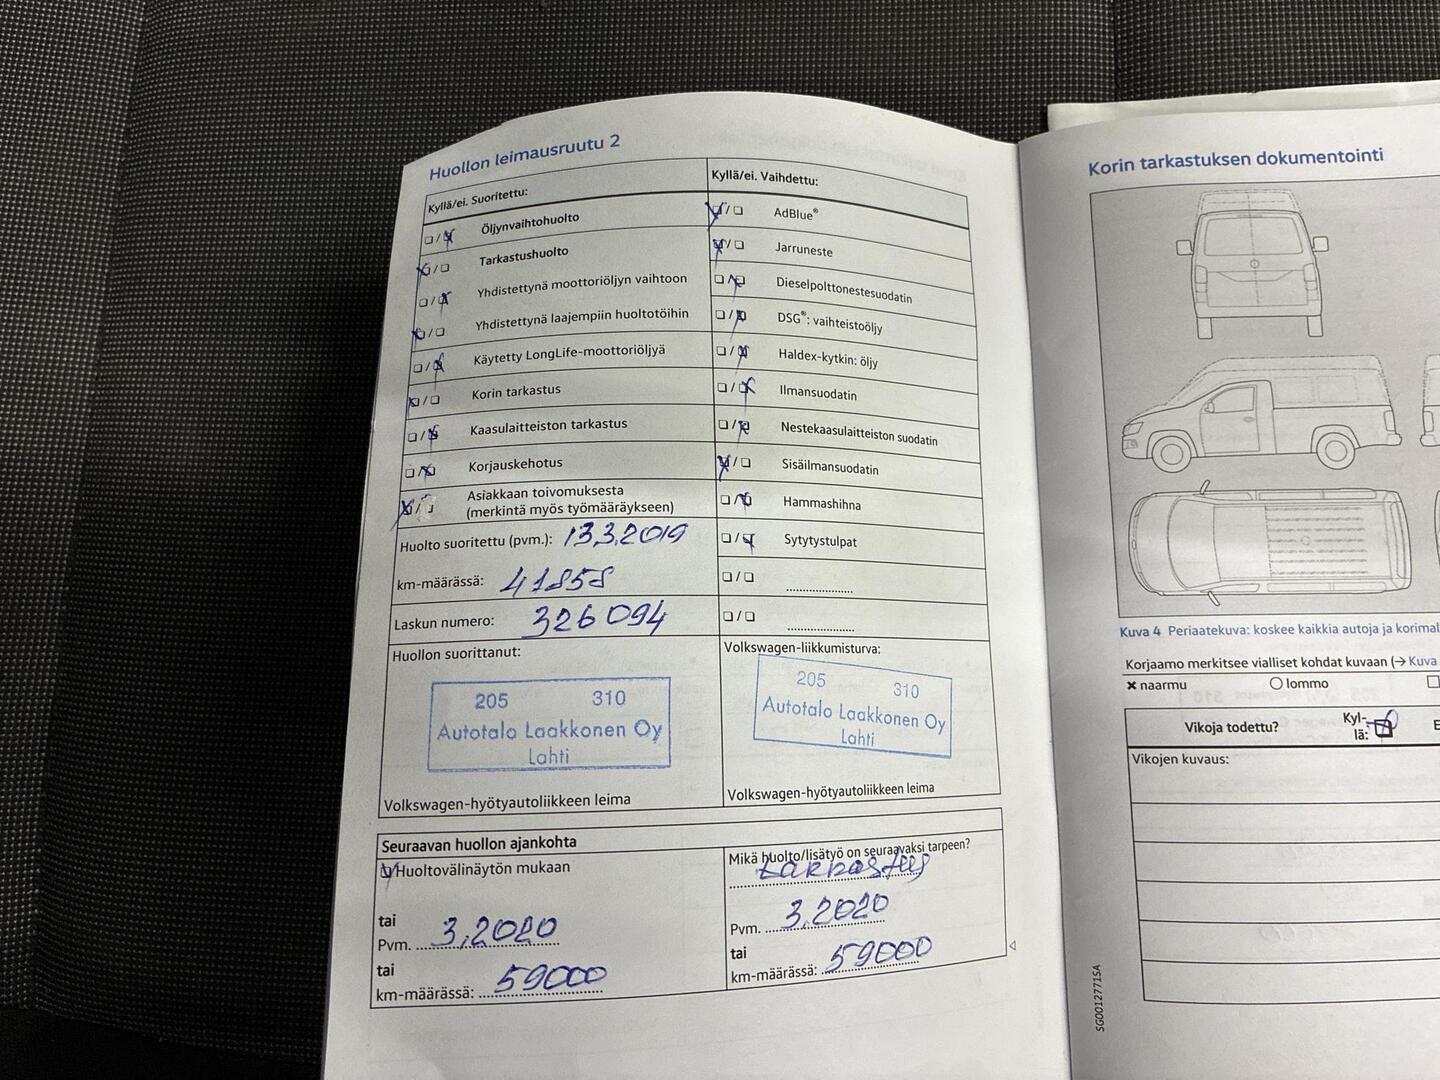 Huollon leimausruutu 2
Kyllä/ei. Suoritettu:
❏/❏ Öljynvaihtohuolto
❏/❏ Tarkastushuolto
❏/❏ Yhdistettynä moottoriöljyn vaihtoon
❏/❏ Yhdistettynä laajempiin huoltotöihin
❏/❏ Käytetty LongLife-moottoriöljyä
❏/❏ Korin tarkastus
❏/❏ Kaasulaitteiston tarkastus
❏/❏ Korjauskehotus
❏/❏ Asiakkaan toivomuksesta
(merkintä myös työmääräykseen)
Huolto suoritettu (pvm.): 13.3.2019
km-määrässä: 41858
Laskun numero: 326094
Huollon suorittanut:
205 310
Autotalo Laakkonen Oy
Lahti
Volkswagen-hyötyautoliikkeen leima
Kyllä/ei. Vaihdettu:
❏/❏ AdBlue®
❏/❏ Jarruneste
❏/❏ Dieselpolttonestesuodatin
❏/❏ DSG®: vaihteistoöljy
❏/❏ Haldex-kytkin: öljy
❏/❏ Ilmansuodatin
❏/❏ Nestekaasulaitteiston suodatin
❏/❏ Sisäilmansuodatin
❏/❏ Hammashihna
❏/❏ Sytytystulpat
❏/❏ ......................
❏/❏ ......................
Volkswagen-liikkumisturva:
205 310
Autotalo Laakkonen Oy
Lahti
Volkswagen-hyötyautoliikkeen leima
Seuraavan huollon ajankohta
❏ Huoltovälinäytön mukaan
tai
Pvm. 3.2020
tai
km-määrässä: 59000
Mikä huolto/lisätyö on seuraavaksi tarpeen?
tarkastus
Pvm. 3.2020
tai
km-määrässä: 59000
Korin tarkastuksen dokumentointi
Kuva 4 Periaatekuva: koskee kaikkia autoja ja korimal
Korjaamo merkitsee vialliset kohdat kuvaan (→ Kuva
✖ naarmu ○ lommo
Vikoja todettu? Kyl-
lä:
E
Vikojen kuvaus:
SG0012771SA